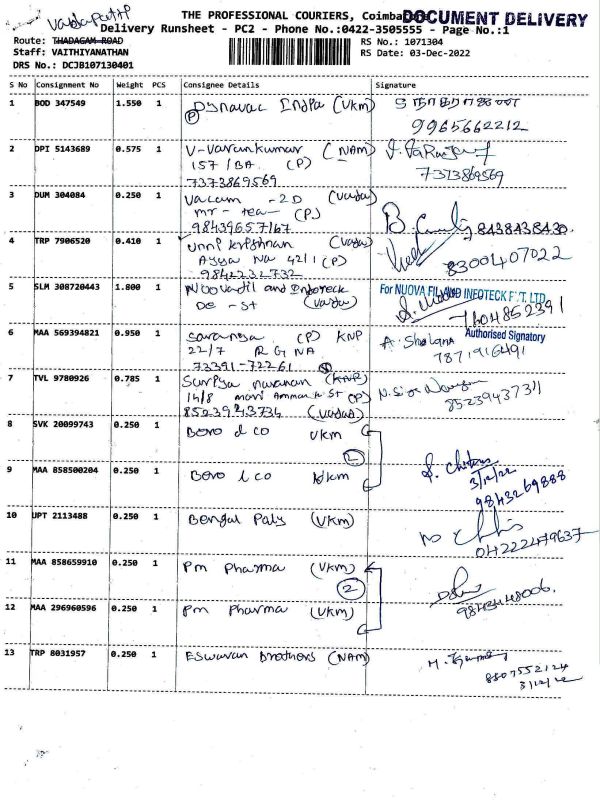 THE PROFESSIONAL COURIERS, Coimba
DOCUMENT DELIVERY
Delivery Runsheet - PC2 - Phone No.:0422-3505555 - Page No.:1
Route: THADAGAM ROAD
RS No.: 1071304
Staff: VAITHIYANATHAN
RS Date: 03-Dec-2022
DRS No.: DCJB107130401
S No Consignment No Weight PCS Consignee Details Signature
1 BOD 347549 1.550 1 Dynavac India (VKm)
(P)
9965662212
2 DPI 5143689 0.575 1 V-Varunkumar (NAM)
157/BA (P)
7373869569 7373869569
3 DUM 304084 0.250 1 Vaccum -2D
mr - tea - (P)
98439657167 8438438430
4 TRP 7906520 0.410 1 Unni Krishnan
Ayya Na 42/1 (P)
9842232732 8300407022
5 SLM 308720443 1.800 1 Nuovafil and Infoteck
DC - St
For NUOVA FIL AND INFOTECK PVT. LTD
7604852391
Authorised Signatory
6 MAA 569394821 0.950 1 Saranya (P) KNP
22/7 R G NA
73391-72261 7871916491
7 TVL 9780926 0.785 1 Surya naranan (KNP)
14/8 mari Amman k St (P)
8523943734 8523943731
8 SVK 20099743 0.250 1 Bero & co VKm
2
9 MAA 858500204 0.250 1 Bero & co VKm
3/12/22
9843269888
10 UPT 2113488 0.250 1 Bengal Paly (VKm)
04222479637
11 MAA 858659910 0.250 1 Pm Pharma (VKm)
2
12 MAA 296960596 0.250 1 Pm Pharma (VKm)
13 TRP 8031957 0.250 1 Eswaran Brothers (NAM)
3/12/22